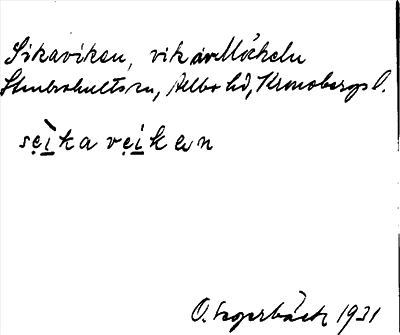 Sikaviken, vik av Möckeln
Stenbrohults sn, Allbo hd, Kronobergs l.
sei̠ka vei̠ken
O. Segerbäck 1931